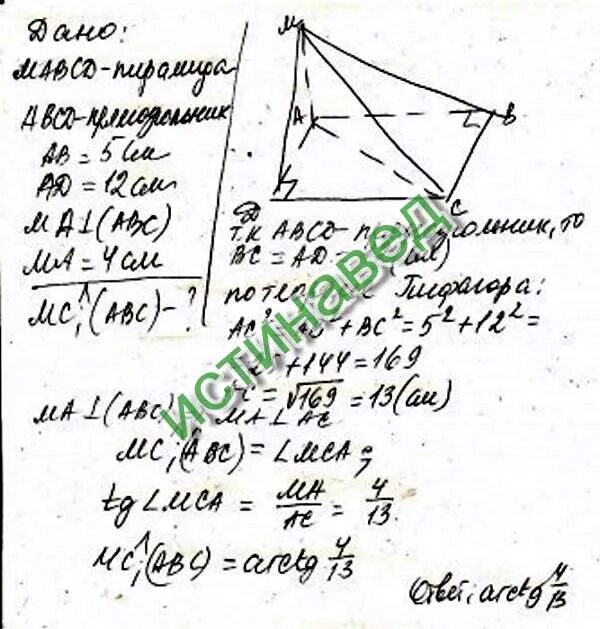 Дано:
MABCD-пирамида
ABCD-прямоугольник
AB = 5 см
AD = 12 см
MA⊥(ABC)
MA = 4 см
MC,^(ABC) - ?
M
A
B
D
C
Т.К ABCD- прямоугольник, то
BC = AD = (см)
по Пифагора:
AC² = + BC² = 5² + 12² =
+ 144 = 169
= √169 = 13 (см)
MA⊥(ABC) MA⊥AC
MC,^(ABC) = ∠MCA;
tg∠MCA = MA/AC = 4/13.
MC,^(ABC) = arctg 4/13
Ответ: arctg 4/13
истинавед